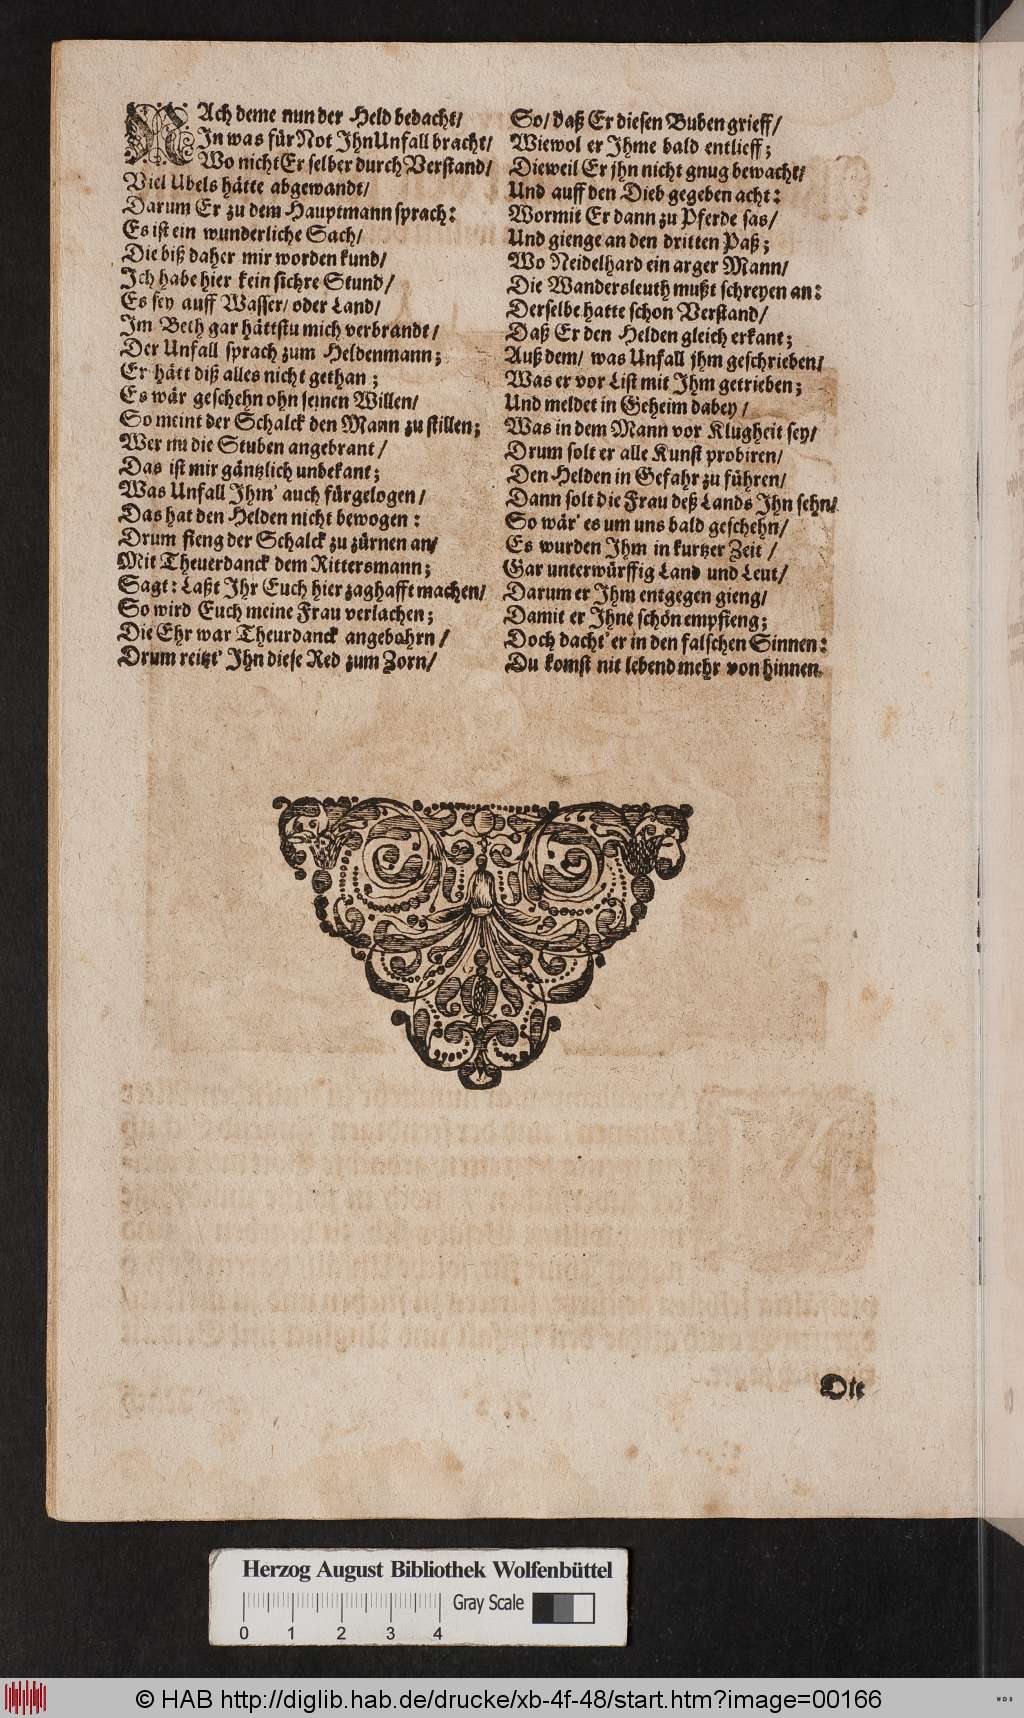 NAch deme nun der Held bedacht/
In was für Not Ihn Unfall bracht/
Wo nicht Er selber durch Verstand/
Viel Ubels hätte abgewandt/
Darum Er zu dem Hauptmann sprach:
Es ist ein wunderliche Sach/
Die biß daher mir worden kund/
Ich habe hier kein sichre Stund/
Es sey auff Wasser/ oder Land/
Im Beth gar hättstu mich verbrandt/
Der Unfall sprach zum Heldenmann;
Er hätt diß alles nicht gethan;
Es wär geschehn ohn seinen Willen/
So meint der Schalck den Mann zu stillen;
Wer nu die Stuben angebrant/
Das ist mir gäntzlich unbekant;
Was Unfall Ihm' auch fürgelogen/
Das hat den Helden nicht bewogen:
Drum fieng der Schalck zu zürnen an/
Mit Theuerdanck dem Rittersmann;
Sagt: Laßt Ihr Euch hier zaghafft machen/
So wird Euch meine Frau verlachen;
Die Ehr war Theurdanck angebohrn/
Drum reitzt' Ihn diese Red zum Zorn/
So/ daß Er diesen Buben grieff/
Wiewol er Ihme bald entlieff;
Dieweil Er jhn nicht gnug bewacht/
Und auff den Dieb gegeben acht:
Wormit Er dann zu Pferde sas/
Und gienge an den dritten Paß;
Wo Neidelhard ein arger Mann/
Die Wandersleuth mußt schreyen an:
Derselbe hatte schon Verstand/
Daß Er den Helden gleich erkant;
Auß dem/ was Unfall jhm geschrieben/
Was er vor List mit Ihm getrieben;
Und meldet in Geheim dabey/
Was in dem Mann vor Klugheit sey/
Drum solt er alle Kunst probiren/
Den Helden in Gefahr zu führen/
Dann solt die Frau deß Lands Ihn sehn/
So wär' es um uns bald geschehn/
Es wurden Ihm in kurtzer Zeit/
Gar unterwürffig Land und Leut/
Darum er Ihm entgegen gieng/
Damit er Ihne schön empfieng;
Doch dacht' er in den falschen Sinnen:
Du komst nit lebend mehr von hinnen.
Die
Herzog August Bibliothek Wolfenbüttel
Gray Scale
0 1 2 3 4
© HAB http://diglib.hab.de/drucke/xb-4f-48/start.htm?image=00166